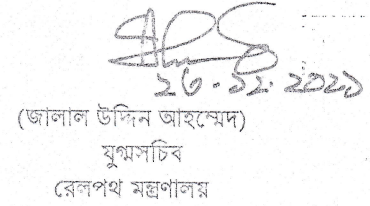 ২৩.১২.২০২১
(জালাল উদ্দিন আহম্মেদ)
যুগ্মসচিব
রেলপথ মন্ত্রণালয়